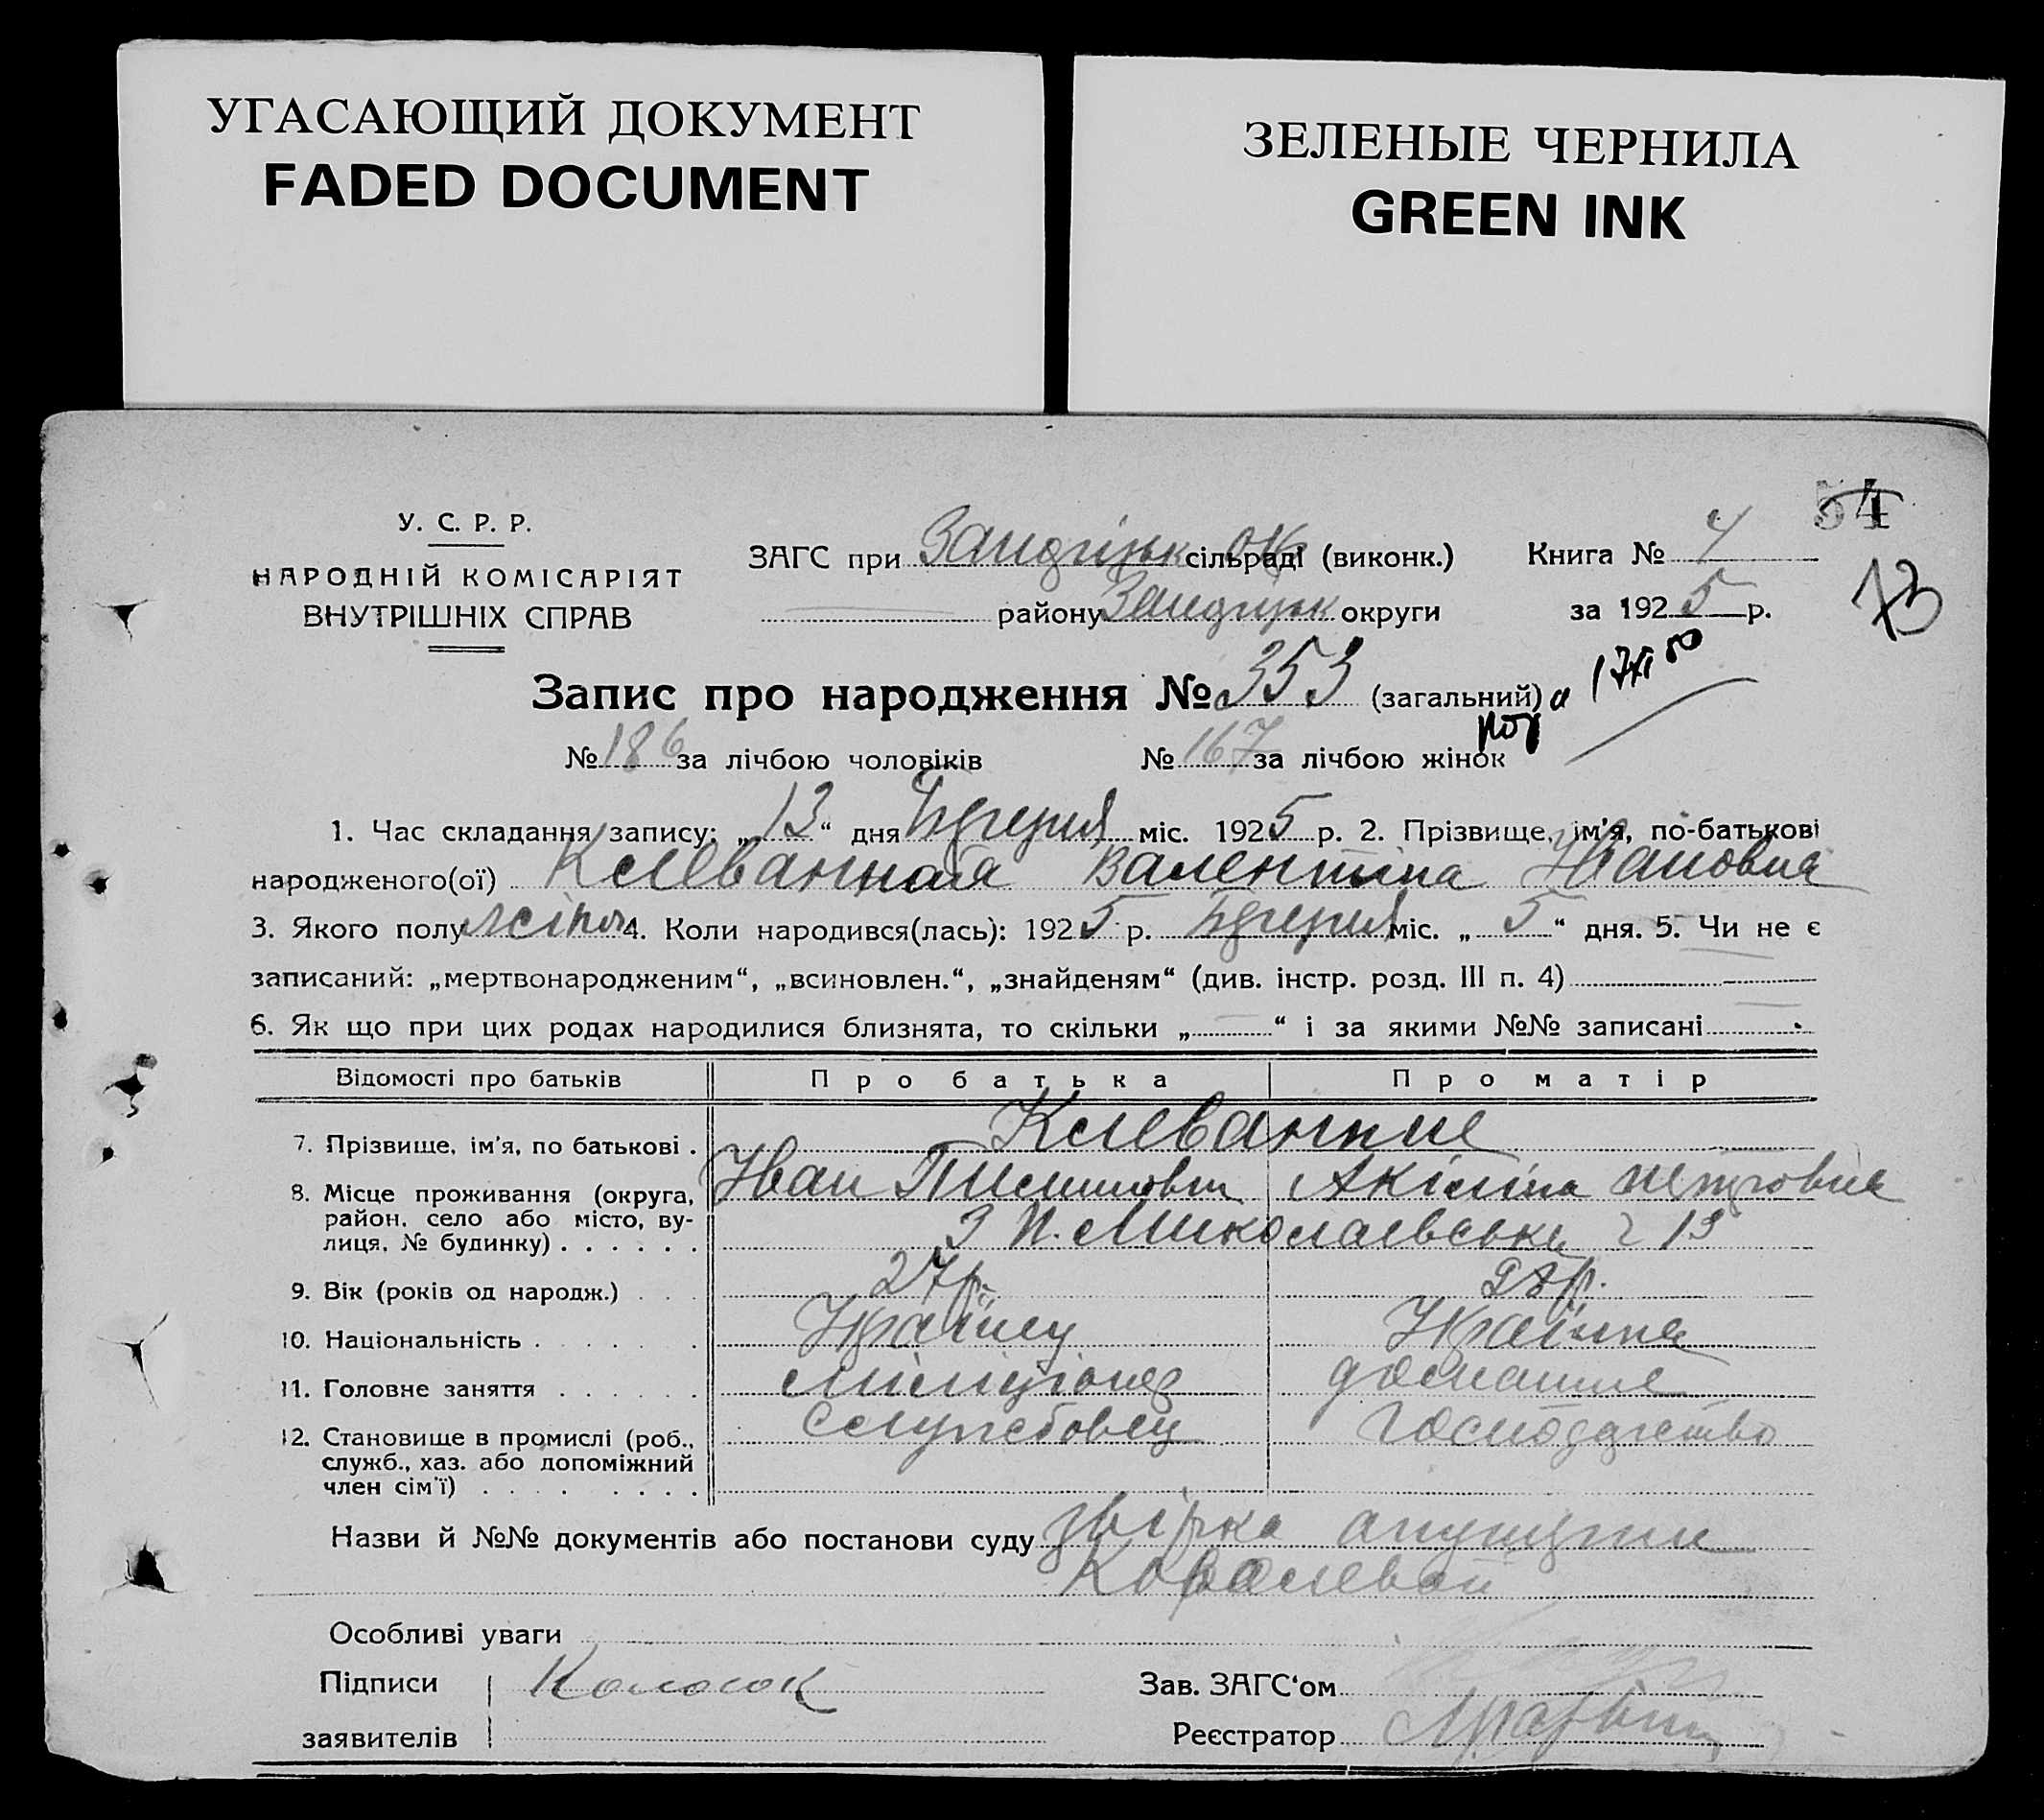 УГАСАЮЩИЙ ДОКУМЕНТ
FADED DOCUMENT
ЗЕЛЕНЫЕ ЧЕРНИЛА
GREEN INK
54
73
У. С. Р. Р.
НАРОДНІЙ КОМІСАРІЯТ
ВНУТРІШНІХ СПРАВ
ЗАГС при сільраді (виконк.) Книга № 4
району округи за 1925 р.
Запис про народження № 353 (загальний)
№ 186 за лічбою чоловіків № 167 за лічбою жінок
1. Час складання запису: „13“ дня міс. 1925 р. 2. Прізвище, ім'я, по-батькові
народженого(ої) Клеванная Валентіна Івановна
3. Якого полу жіноч 4. Коли народився(лась): 1925 р. міс. „5“ дня. 5. Чи не є
записаний: „мертвонародженим“, „всиновлен.“, „знайденям“ (див. інстр. розд. III п. 4)
6. Як що при цих родах народилися близнята, то скільки „—“ і за якими №№ записані
Відомості про батьків Про батька Про матір
7. Прізвище, ім'я, по батькові . Клеванние
Іван Акіліна Петровна
8. Місце проживання (округа,
район, село або місто, ву-
лиця, № будинку) . . . . . . З П. Миколаевська 13
9. Вік (років од народж.) . . . 27 р. р.
10. Національність . . . . . . Українец Українка
11. Головне заняття . . . . . . міліціонер домашнє
12. Становище в промислі (роб., службовец господарство
служб., хаз. або допоміжний
член сім'ї) . . . . . . . .
Назви й №№ документів або постанови суду звірка акушерки
Королевой
Особливі уваги
Підписи Колосок Зав. ЗАГС‘ом
заявителів Реєстратор